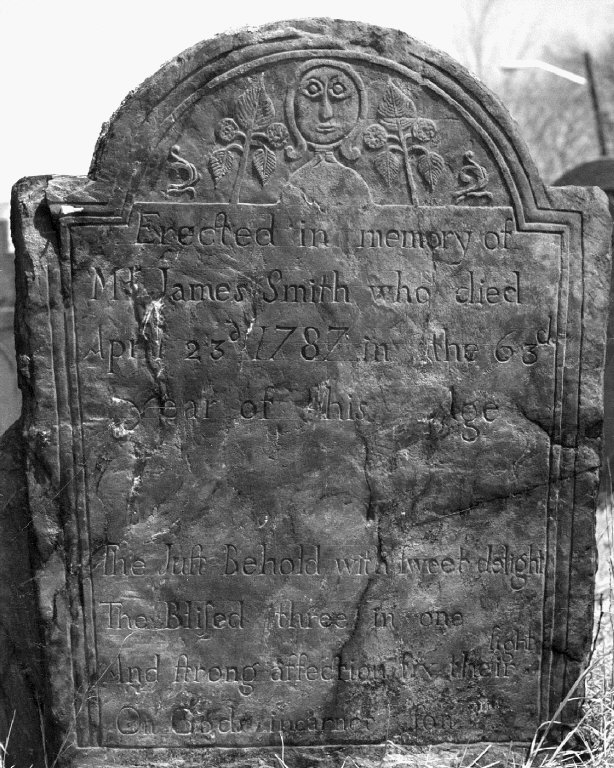 Erected in memory of
Mr James Smith who died
April 23d 1787 in the 63d
year of his Age
The Juſt Behold with ſweet delight
The Bliſed three in one
And ſtrong affection fix their ſight
On Gods incarnet ſon